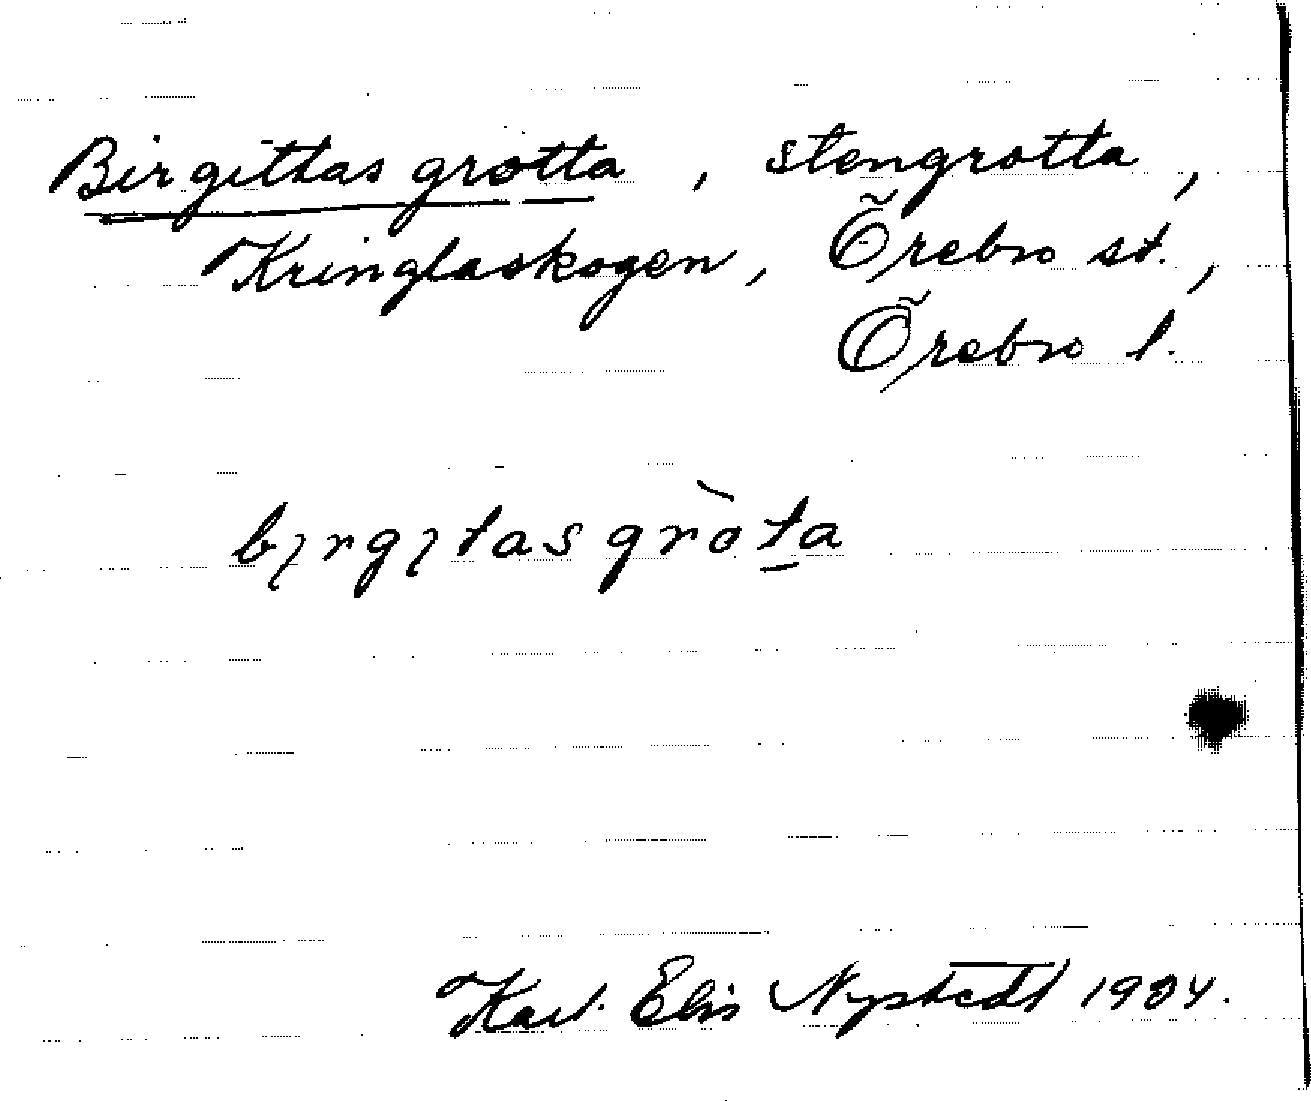 Birgittas grotta, stengrotta,
Kringlaskogen, Örebro st.,
Örebro l.
bɩrgɩtasgròt̲a
Karl Elis Nystedt 1984.